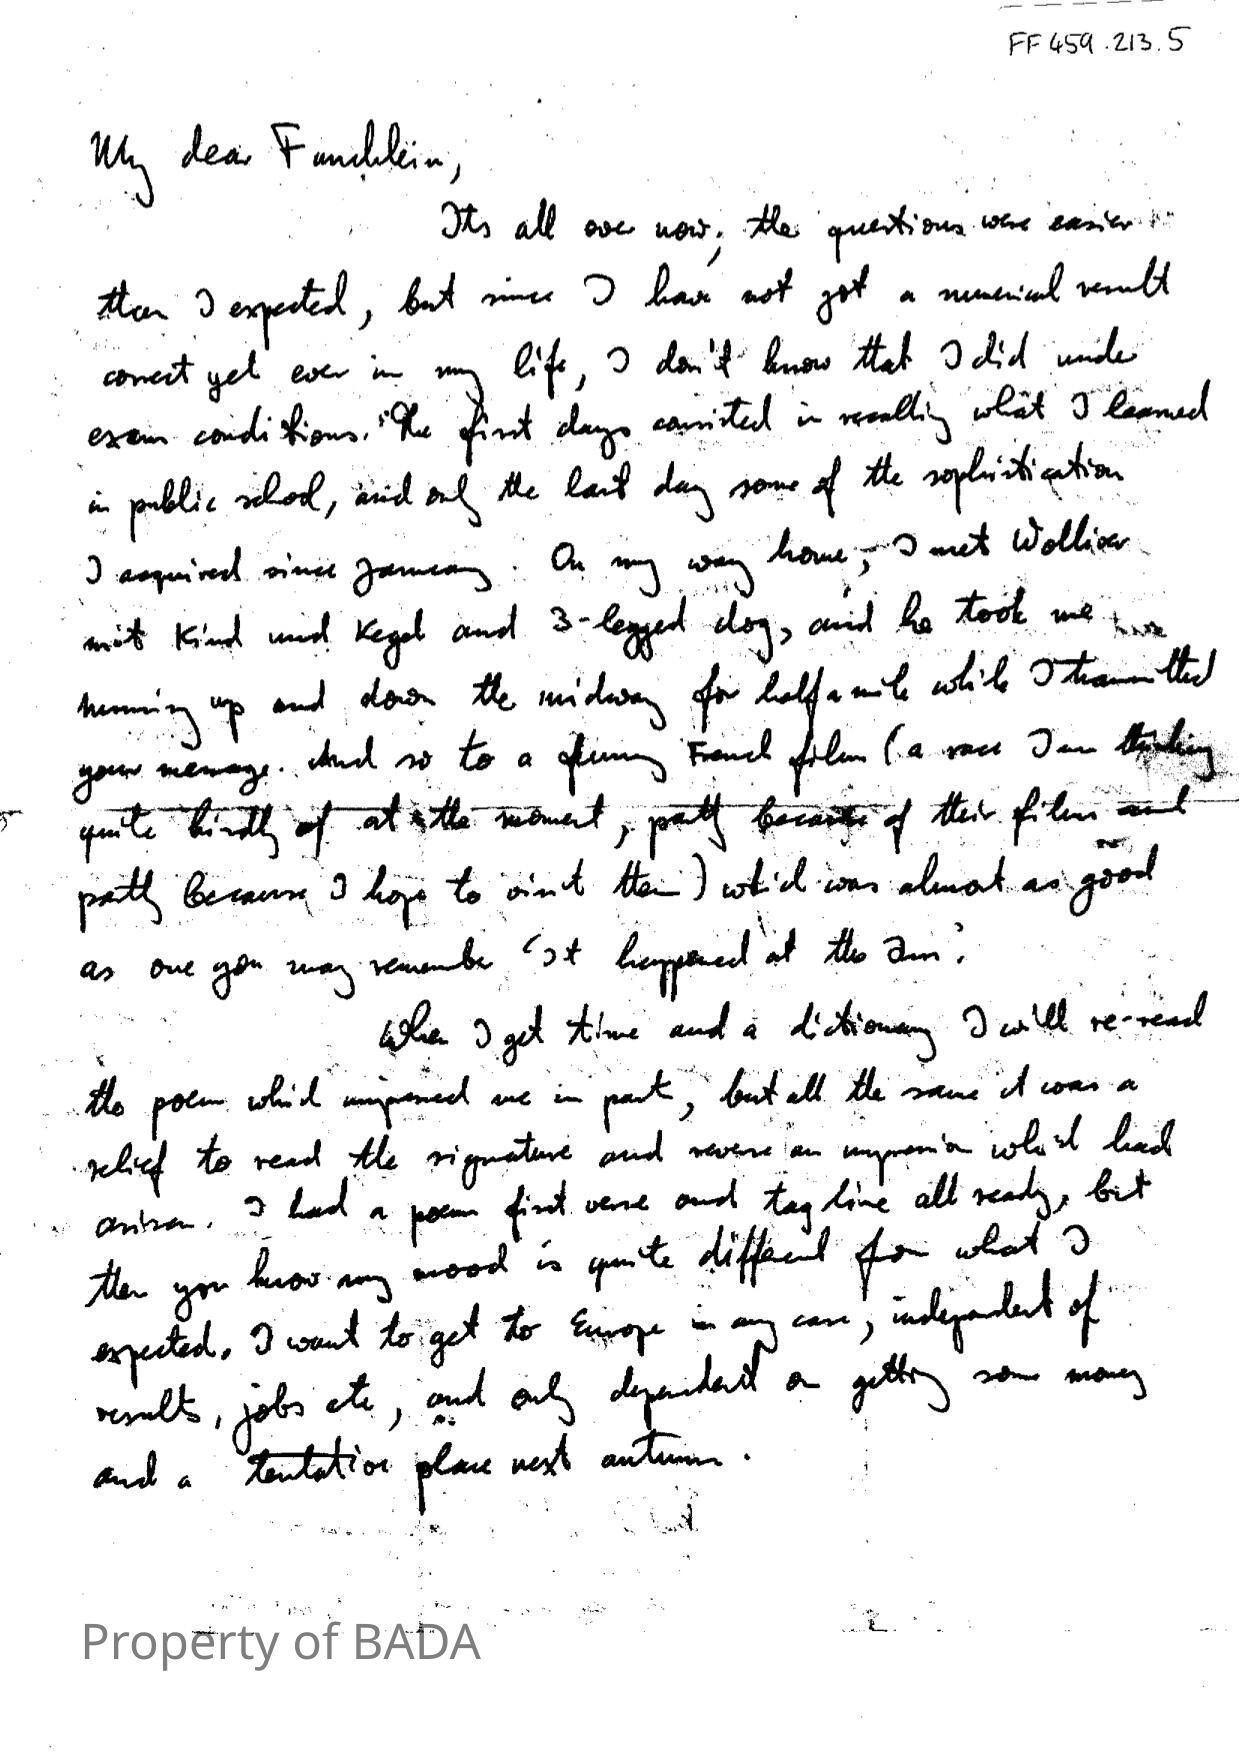 FF 459.213.5
My dear Fünchlein,
Its all over now; the questions were easier
than I expected, but since I have not got a numerical result
correct yet ever in my life, I don't know that I did under
exam conditions. The first days consisted in recalling what I learned
in public school, and only the last day some of the sophistication
I acquired since January. On my way home, I met
mit Kind und Kegel and 3-legged dog, and he took me
running up and down the midway for half a mile while I transmitted
your message. And so to a funny French film (a race I am thinking
quite kindly of at the moment, partly because of their films and
partly because I hope to visit them) which was almost as good
as one you may remember 'It happened at the Inn'.
When I get time and a dictionary I will re-read
the poem which impressed me in part, but all the same it was a
relief to read the signature and reverse an impression which had
arisen. I had a poem first verse and tag line all ready, but
then you know my mood is quite different from what I
expected. I want to get to Europe in any case, independent of
results, jobs etc, and only dependent on getting some money
and a tentative place next autumn.
Property of BADA